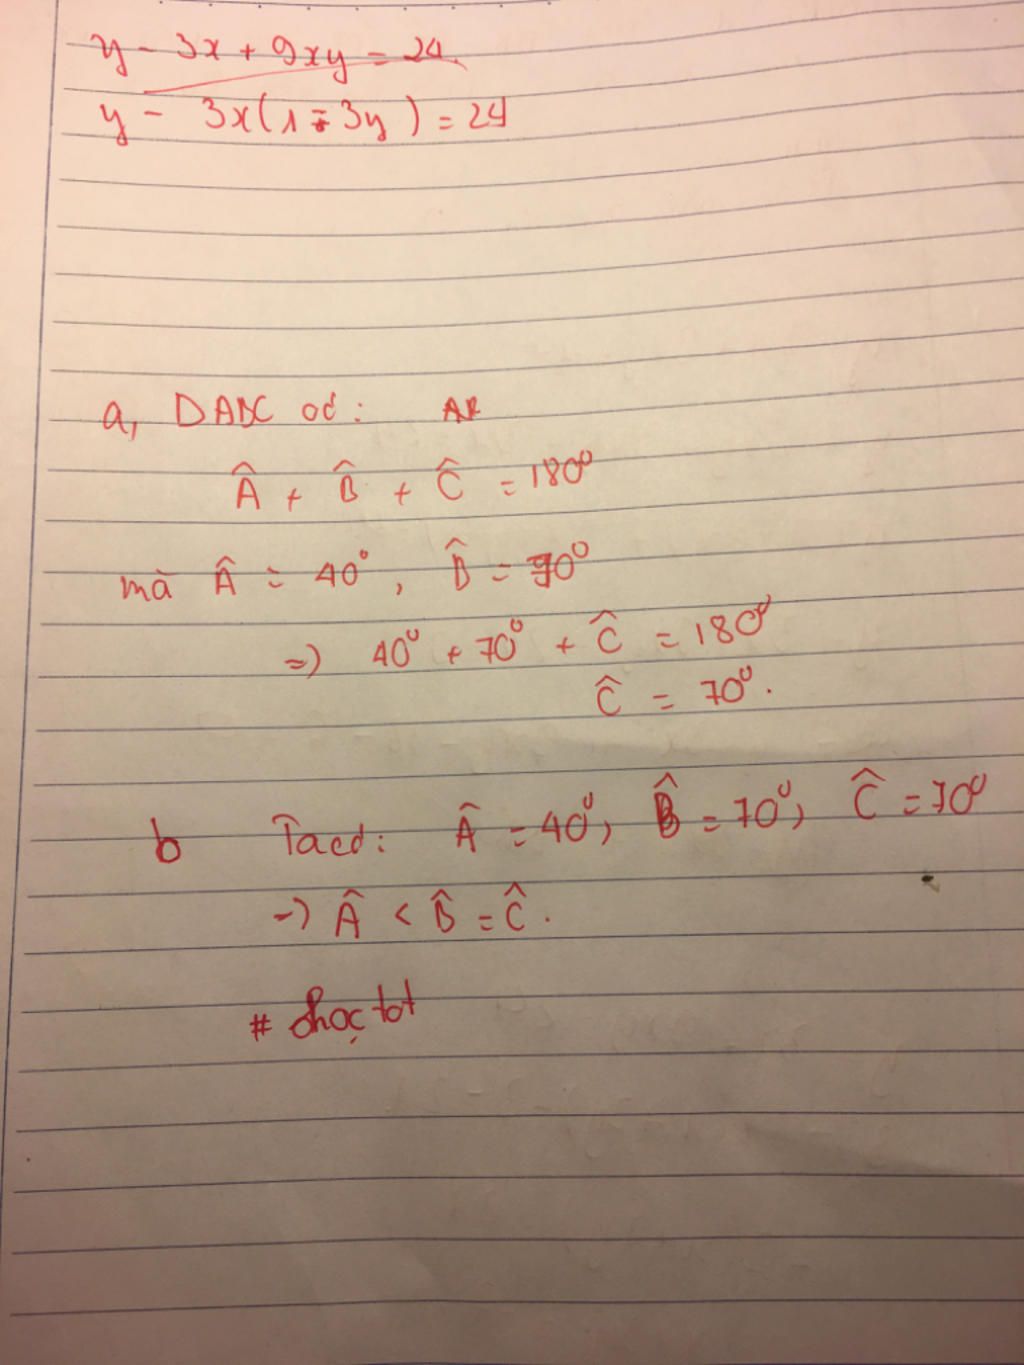 y - 3x + 9xy = 24
y - 3x(1 - 3y) = 24
a, DABC có:
Â + B̂ + Ĉ = 180⁰
mà Â = 40⁰, B̂ = 70⁰
=) 40⁰ + 70⁰ + Ĉ = 180⁰
Ĉ = 70⁰.
b Ta có: Â = 40⁰, B̂ = 70⁰, Ĉ = 70⁰
-) Â < B̂ = Ĉ.
# học tot